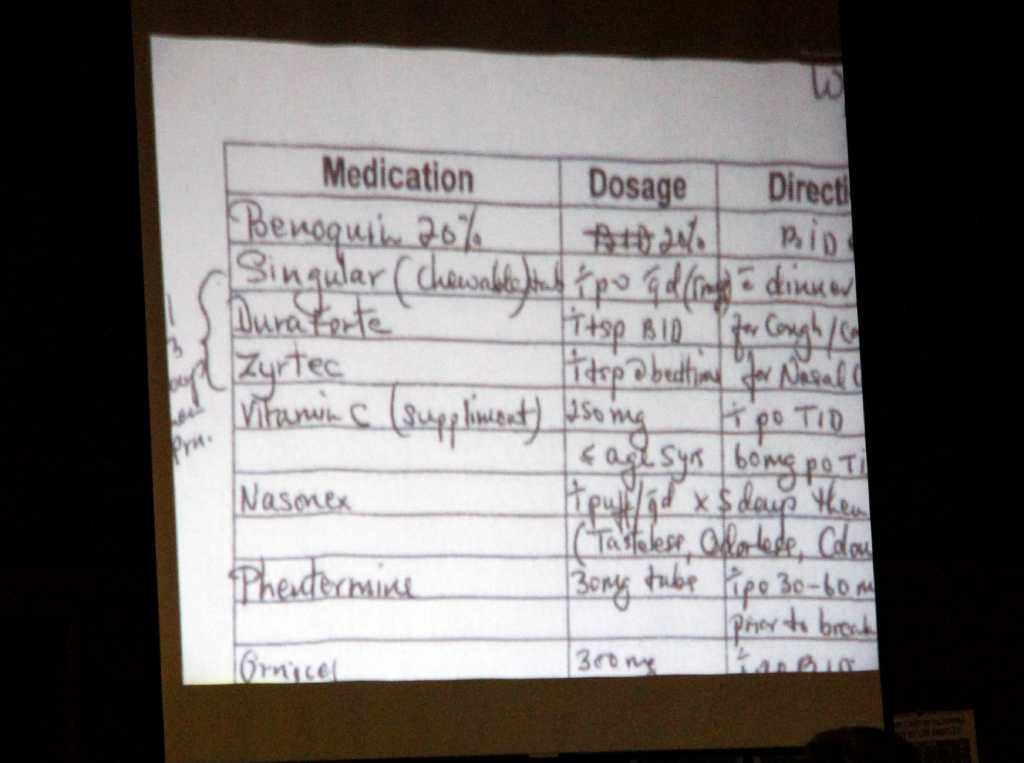 W
Medication Dosage Directi
Benoquin 20% BID 20% BID
Singular (Chewable) tab i po qd (5mg) c dinner
Dura Forte i tsp BID for Cough/Co
Zyrtec i tsp @ bedtime for Nasal C
Vitamin C (Suppliment) 250mg i po TID
≤ age 5yrs 60mg po Ti
Nasonex i puff/qd x 5 days then
(Tasteless, Odorless, Colou
Phentermine 30mg tube i po 30-60 m
prior to break
300mg i po BID
3
prn.